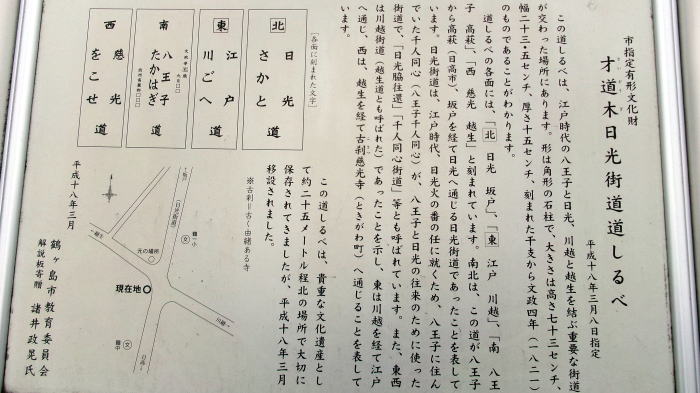 市指定有形文化財
才道木日光街道道しるべ
平成十八年三月八日指定
この道しるべは、江戸時代の八王子と日光、川越と越生を結ぶ重要な街道
が交わった場所にあります。形は角形の石柱で、大きさは高さ七十三センチ、
幅二十三・五センチ、厚さ十五センチ、刻まれた干支から文政四年（一八二一）
のものであることがわかります。
道しるべの各面には、「北 日光 坂戸」、「東 江戸 川越」、「南 八王
子 高萩」、「西 慈光 越生」と刻まれています。南北は、この道が八王子
から高萩（日高市）、坂戸を経て日光へ通じる日光街道であったことを表して
います。日光街道は、江戸時代、日光火の番の任に就くため、八王子に住ん
でいた千人同心（八王子千人同心）が、八王子と日光の往来のために使った
街道で、「日光脇往還」「千人同心街道」等とも呼ばれています。また、東西
は川越街道（越生道とも呼ばれた）であったことを示し、東は川越を経て江戸
へ通じ、西は、越生を経て古刹慈光寺（ときがわ町）へ通じることを表して
います。
［各面に刻まれた文字］
北 日光 さかと 道
東 江戸 川ごへ 道
南 八王子 たかはぎ 道
西 慈光 をこせ 道
※古刹＝古く由緒ある寺
この道しるべは、貴重な文化遺産とし
て約二十五メートル程北の場所で大切に
保存されてきましたが、平成十八年三月
移設されました。
日光街道
鶴一小
文
元の場所
現在地
越生
川越
文
鶴中
日高
平成十八年三月
鶴ヶ島市教育委員会
解説板寄贈 諸井政晃氏